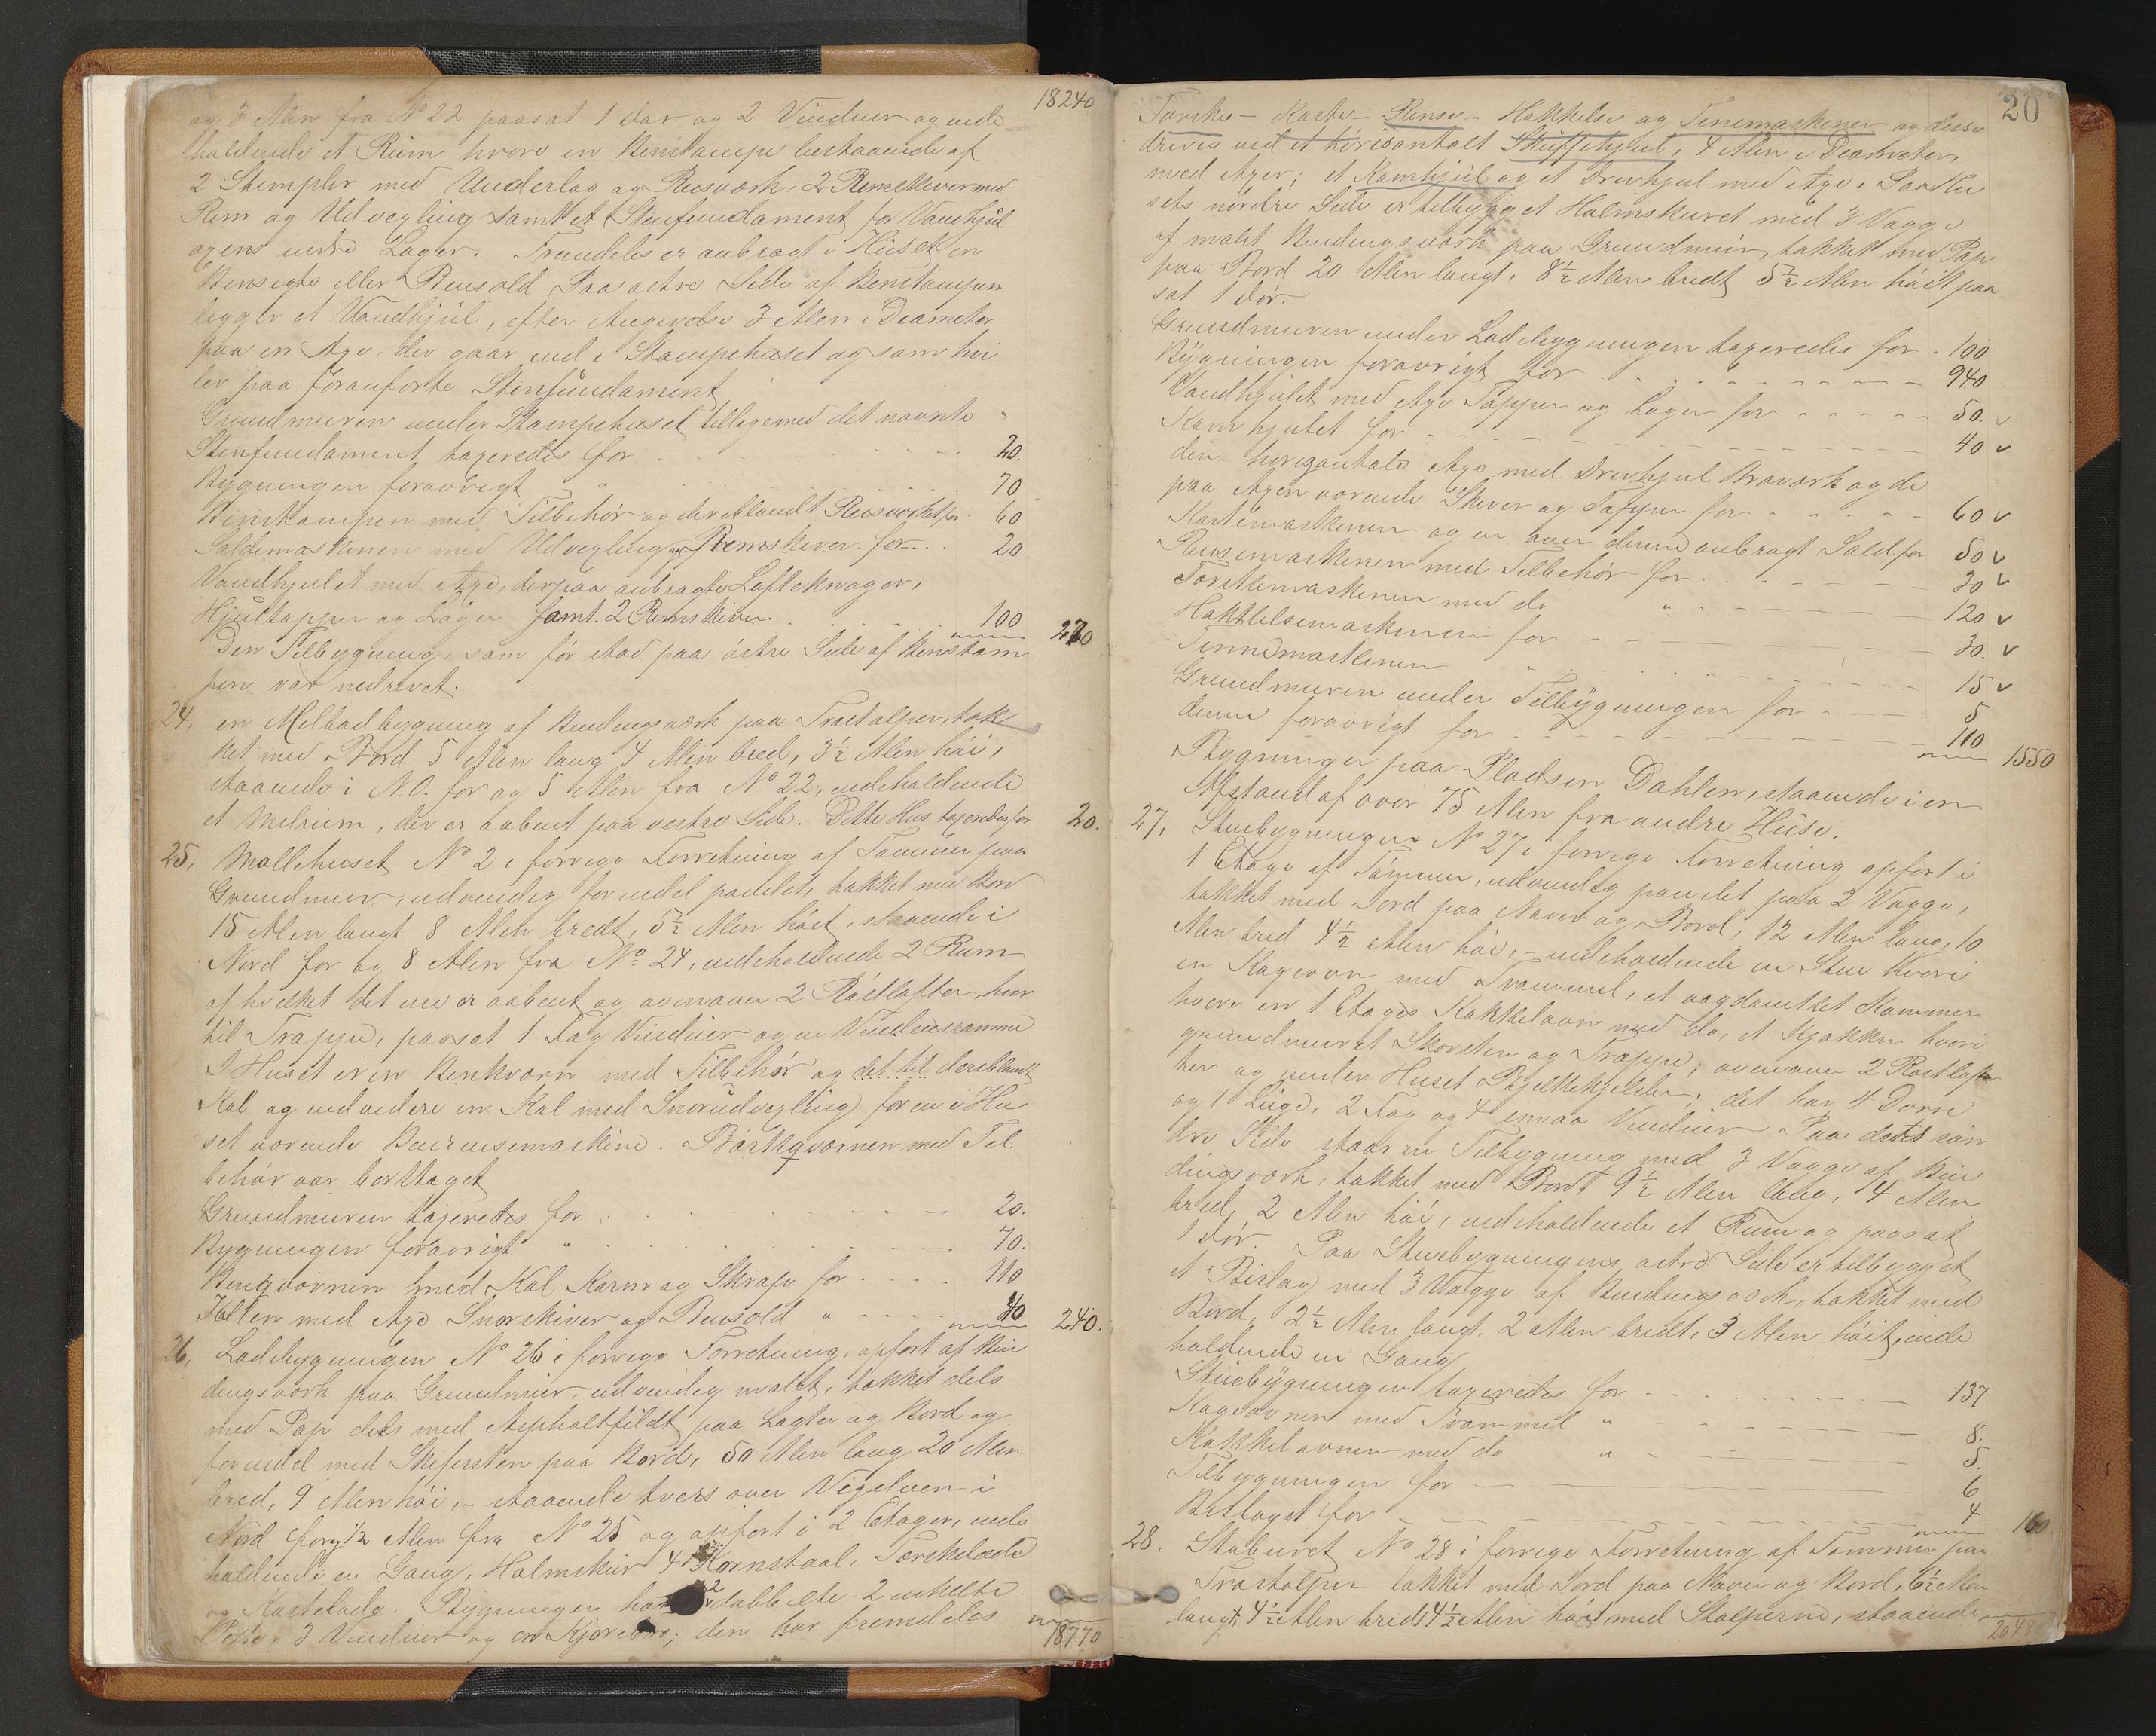 18240
og 3 Alen fra No 22 paasat 1 dør og 2 Vinduer og inde
holdende et Rum hvori en Benstampe bestaaende af
2 Stempler med Underlag og Reisværk, 2 Remskiver med
Rem og Udvexling samt et Stenfundament for Vandhjul
axens indre Lager. Fremdeles er anbragt i Huset en
Bensigte eller Bensold Paa østre Side af Benstampen
ligger et Vandhjul, efter Angivelse 3 Alen i Diameter
paa en Axe, der gaar ind i Stampehuset og som hvi
ler paa foranførte Stenfundament
Grundmuren under Stampehuset tilligemed det nævnte
Stenfundament taxeredes for 20.
Bygningen forøvrigt " 70
Benstampen med Tilbehør og deriblandt Reisværket for 60
Soldemaskinen med Udvexling og Remskiver for 20
Vandhjulet med Axe, derpaa anbragte Løfteknager,
Hjultapper og Lager samt 2 Remskiver 100 270
Den Tilbygning, som før stod paa østre Side af Benstam
pen var nedrevet.
24. en Melbodbygning af Bindingsværk paa Træstolper, tæk
ket med Bord 5 Alen lang 4 Alen bred, 3½ Alen høi,
staaende i N.O. for og 5 Alen fra No 22, indeholdende
et Melrum, der er aabent paa vestre Side. Dette Hus taxeredes for 20.
25. Møllehuset No 2 i forrige Forretning af Tømmer paa
Grundmur, udvendig for endel panelet, tækket med Bord
15 Alen langt 8 Alen bredt, 5½ Alen høit, staaende i
Nord for og 8 Alen fra No 24, indeholdende 2 Rum
af hvilket det ene er aabent og ovenover 2 Røstlofter, hvor
til Trappe, paasat 1 Fag Vinduer og en Vinduesramme
I Huset er en Benkværn med Tilbehør og det til deriblandt
Kal og endvidere en Kal med Snorudvexling for en i Hu
set værende Benrensemaskine. Barkqværnen med Til
behør var borttaget
Grundmuren taxeredes for 20.
Bygningen forøvrigt " 70.
Benqværnen med Kal Karm og Skrape for 110
Kallen med Axe Snorskiver og Bensold " 40 240.
26. Ladebygningen No 26 i forrige Forretning, opført af Bin
dingsværk paa Grundmur, udvendig malet, tækket dels
med Pap dels med Asphaltfildt paa Lægter og Bord og
for endel med Skifersten paa Bord, 50 Alen lang 20 Alen
bred, 9 Alen høi, - staaende tvers over Vigelven i
Nord for og ½ Alen fra No 25 og opført i 2 Etager, inde
holdende en Gang, Halmskur 4 Kornstaal, Tærskelade
og Kastelade. Bygningen har 2 dobbelte 2 enkelte
Porte, 3 Vinduer og en Kjørebro; den har fremdeles
18770
20
Tærske- Kaste- Rense- Hakkelse og Tinemaskiner og disse
drives ved et horizontalt Skuffehjul, 4 Alen i Diameter,
med Axer; et Kamhjul og et Drivhjul med Axe. Paa Hu
sets nordre Side er tilbygget Halmskuret med 3 Vægge
af malet Bindingsværk paa Grundmur, tækket med Pap
paa Bord 20 Alen langt, 8½ Alen bredt 5½ Alen høit paa
sat 1 dør.
Grundmuren under Ladebygningen taxeredes for 100
Bygningen forøvrigt for 940
Vandhjulet med Axe Tapper og Lager for 50. v
Kamhjulet for 40 v
den horizontale Axe med Drivhjul Braværk og de
paa Axen værende Skiver og Tapper for 60 v
Kastemaskinen og en over denne anbragt Sold for 50 v
Rensemaskinen med Tilbehør for 30 v
Tærskemaskinen med do " 120 v
Hakkelsemaskinen for 30. v
Tinemaskinen " 15 v
Grundmuren under Tilbygningen for 5
denne forøvrigt for 110 1550
Bygninger paa Pladsen Dahlen, staaende i en
Afstand af over 75 Alen fra andre Huse.
27. Stuebygningen No 27 i forrige Forretning opført i
1 Etage af Tømmer, udvendig panelet paa 2 Vægge,
tækket med Jord paa Næver og Bord, 12 Alen lang, 10
Alen bred 4½ Alen høi, - indeholdende en Stue hvori
en Kageovn med Trommel, et aagdømket Kammer
hvori en 1 Etages Kakkelovn med do, et Kjøkken hvori
grundmuret Skorsten og Trappe, ovenover 2 Røstlof
ter og under Huset Bjelkekjelder; det har 4 Dørre
og 1 Luge, 2 Fag og 4 smaa Vinduer. Paa dets søn
dre Side staar en Tilbygning med 3 Vægge af Bin
dingsværk, tækket med Bord 9½ Alen lang, 4 Alen
bred, 2 Alen høi, indeholdende et Rum og paasat
1 dør. Paa Stuebygningens østre Side er tilbygget
et Bislag med 3 Vægge af Bindingsværk, tækket med
Bord, 2½ Alen langt. 2 Alen bredt, 3 Alen høit, inde
holdende en Gang.
Stuebygningen taxeredes for 137
Kageovnen med Trommel " 8.
Kakkelovnen med do " 5.
Tilbygningen for 6
Bislaget for 4 160.
28. Staburet No 28 i forrige Forretning af Tømmer paa
Træstolper tækket med Jord paa Næver og Bord, 6½ Alen
langt, 4½ Alen bredt 4½ Alen høit med Stolperne, staaende